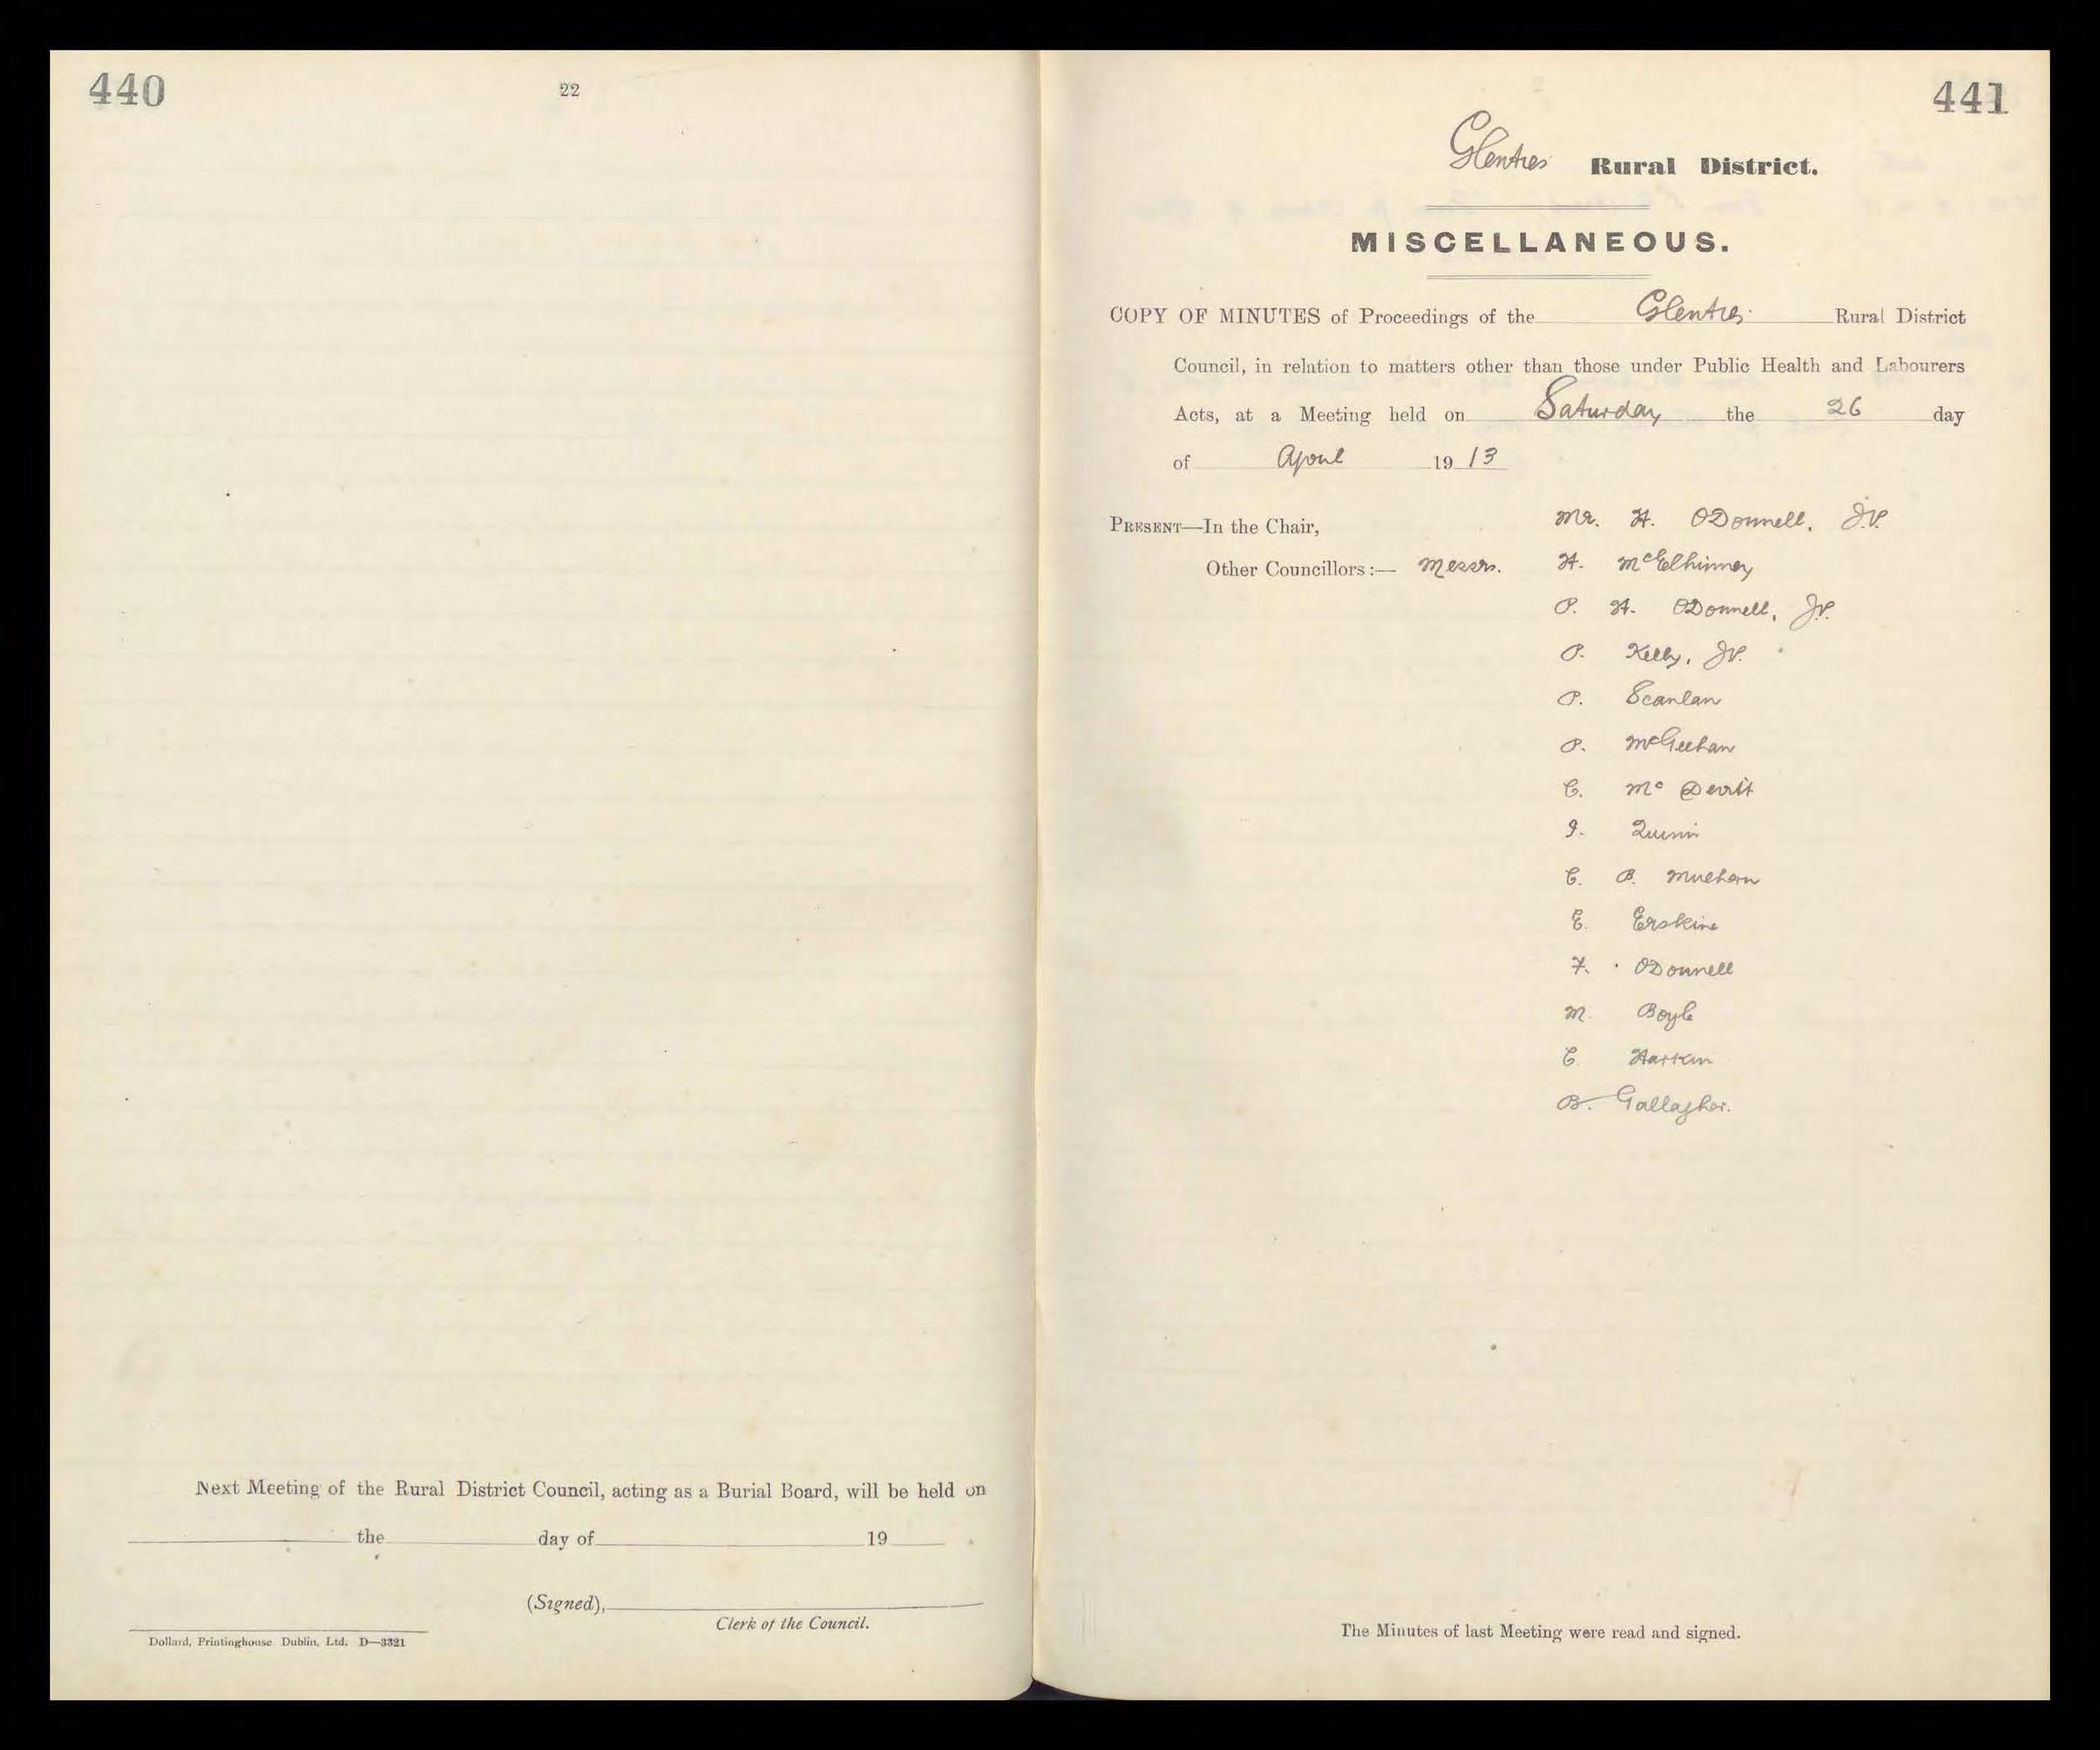 440
22
Next Meeting of the Rural District Council, acting as a Burial Board, will be held on
the day of 19
(Signed),
Clerk of the Council.
Dollard, Printinghouse Dublin, Ltd. D—3321
441
Glenties Rural District.
MISCELLANEOUS.
COPY OF MINUTES of Proceedings of the Glenties Rural District
Council, in relation to matters other than those under Public Health and Labourers
Acts, at a Meeting held on Saturday the 26 day
of April 1913
PRESENT—In the Chair, Mr. H. ODonnell, J.P.
Other Councillors:— Messrs. H. McElhinney
P. H. ODonnell, J.P.
P. Kelly, J.P.
P. Scanlan
P. McGeehan
C. Mc Devitt
J. Quinn
C. B. Mulhern
E. Erskine
F. ODonnell
M. Boyle
C Harkin
B. Gallagher.
The Minutes of last Meeting were read and signed.